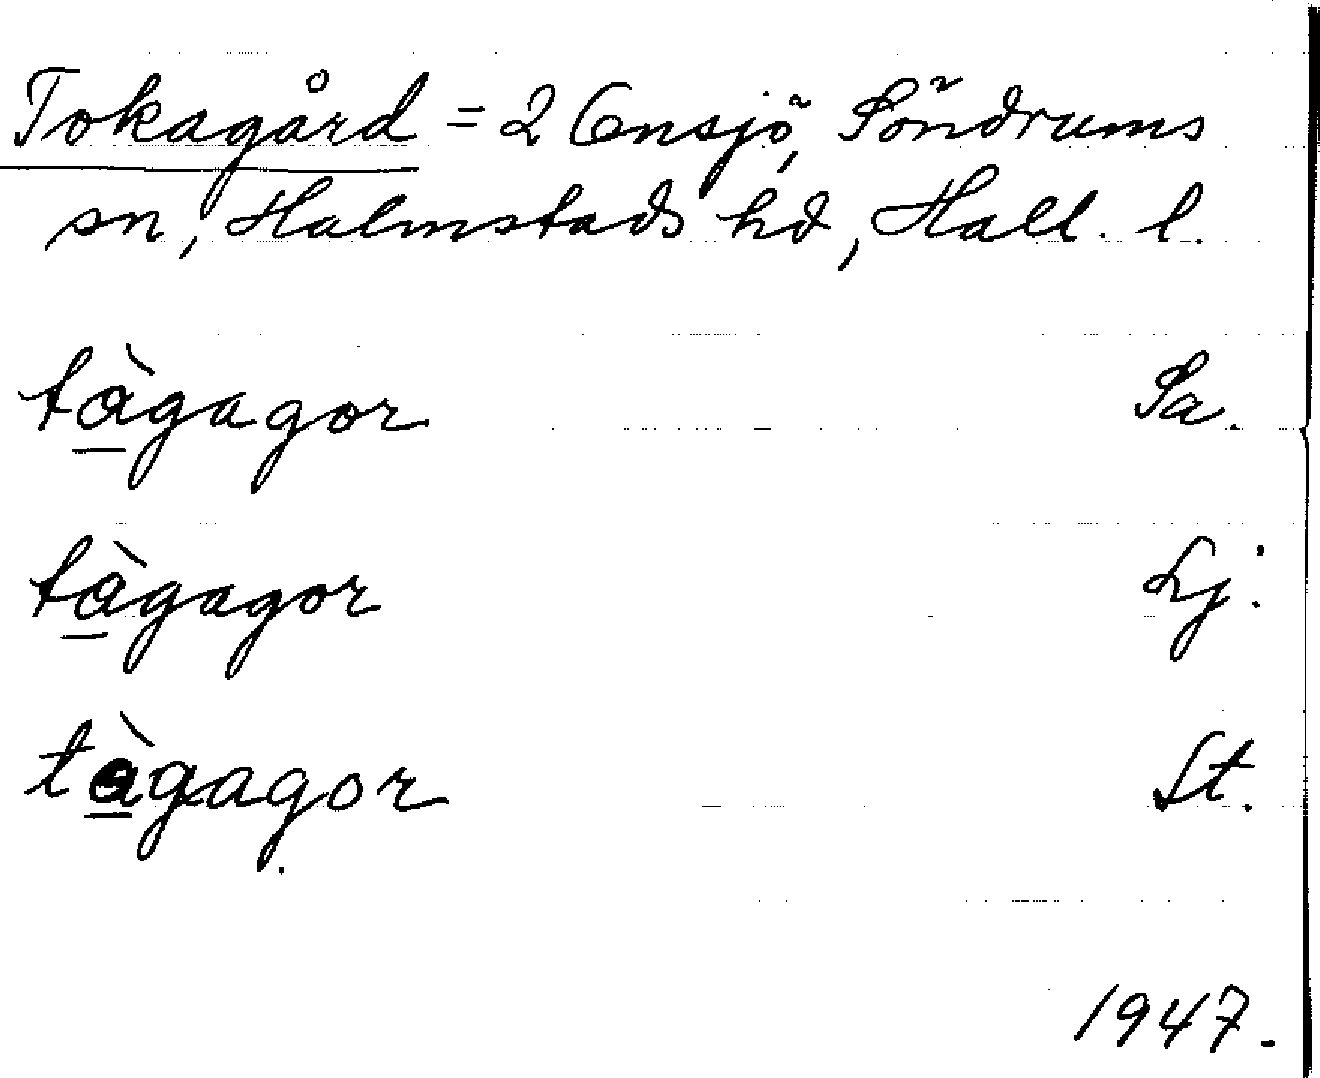 Tokagård = 2 Ensjö, Söndrums
sn, Halmstads hd, Hall. l.
tàgagor Sa.
tàgagor Lj.
tàgagor St.
1947.